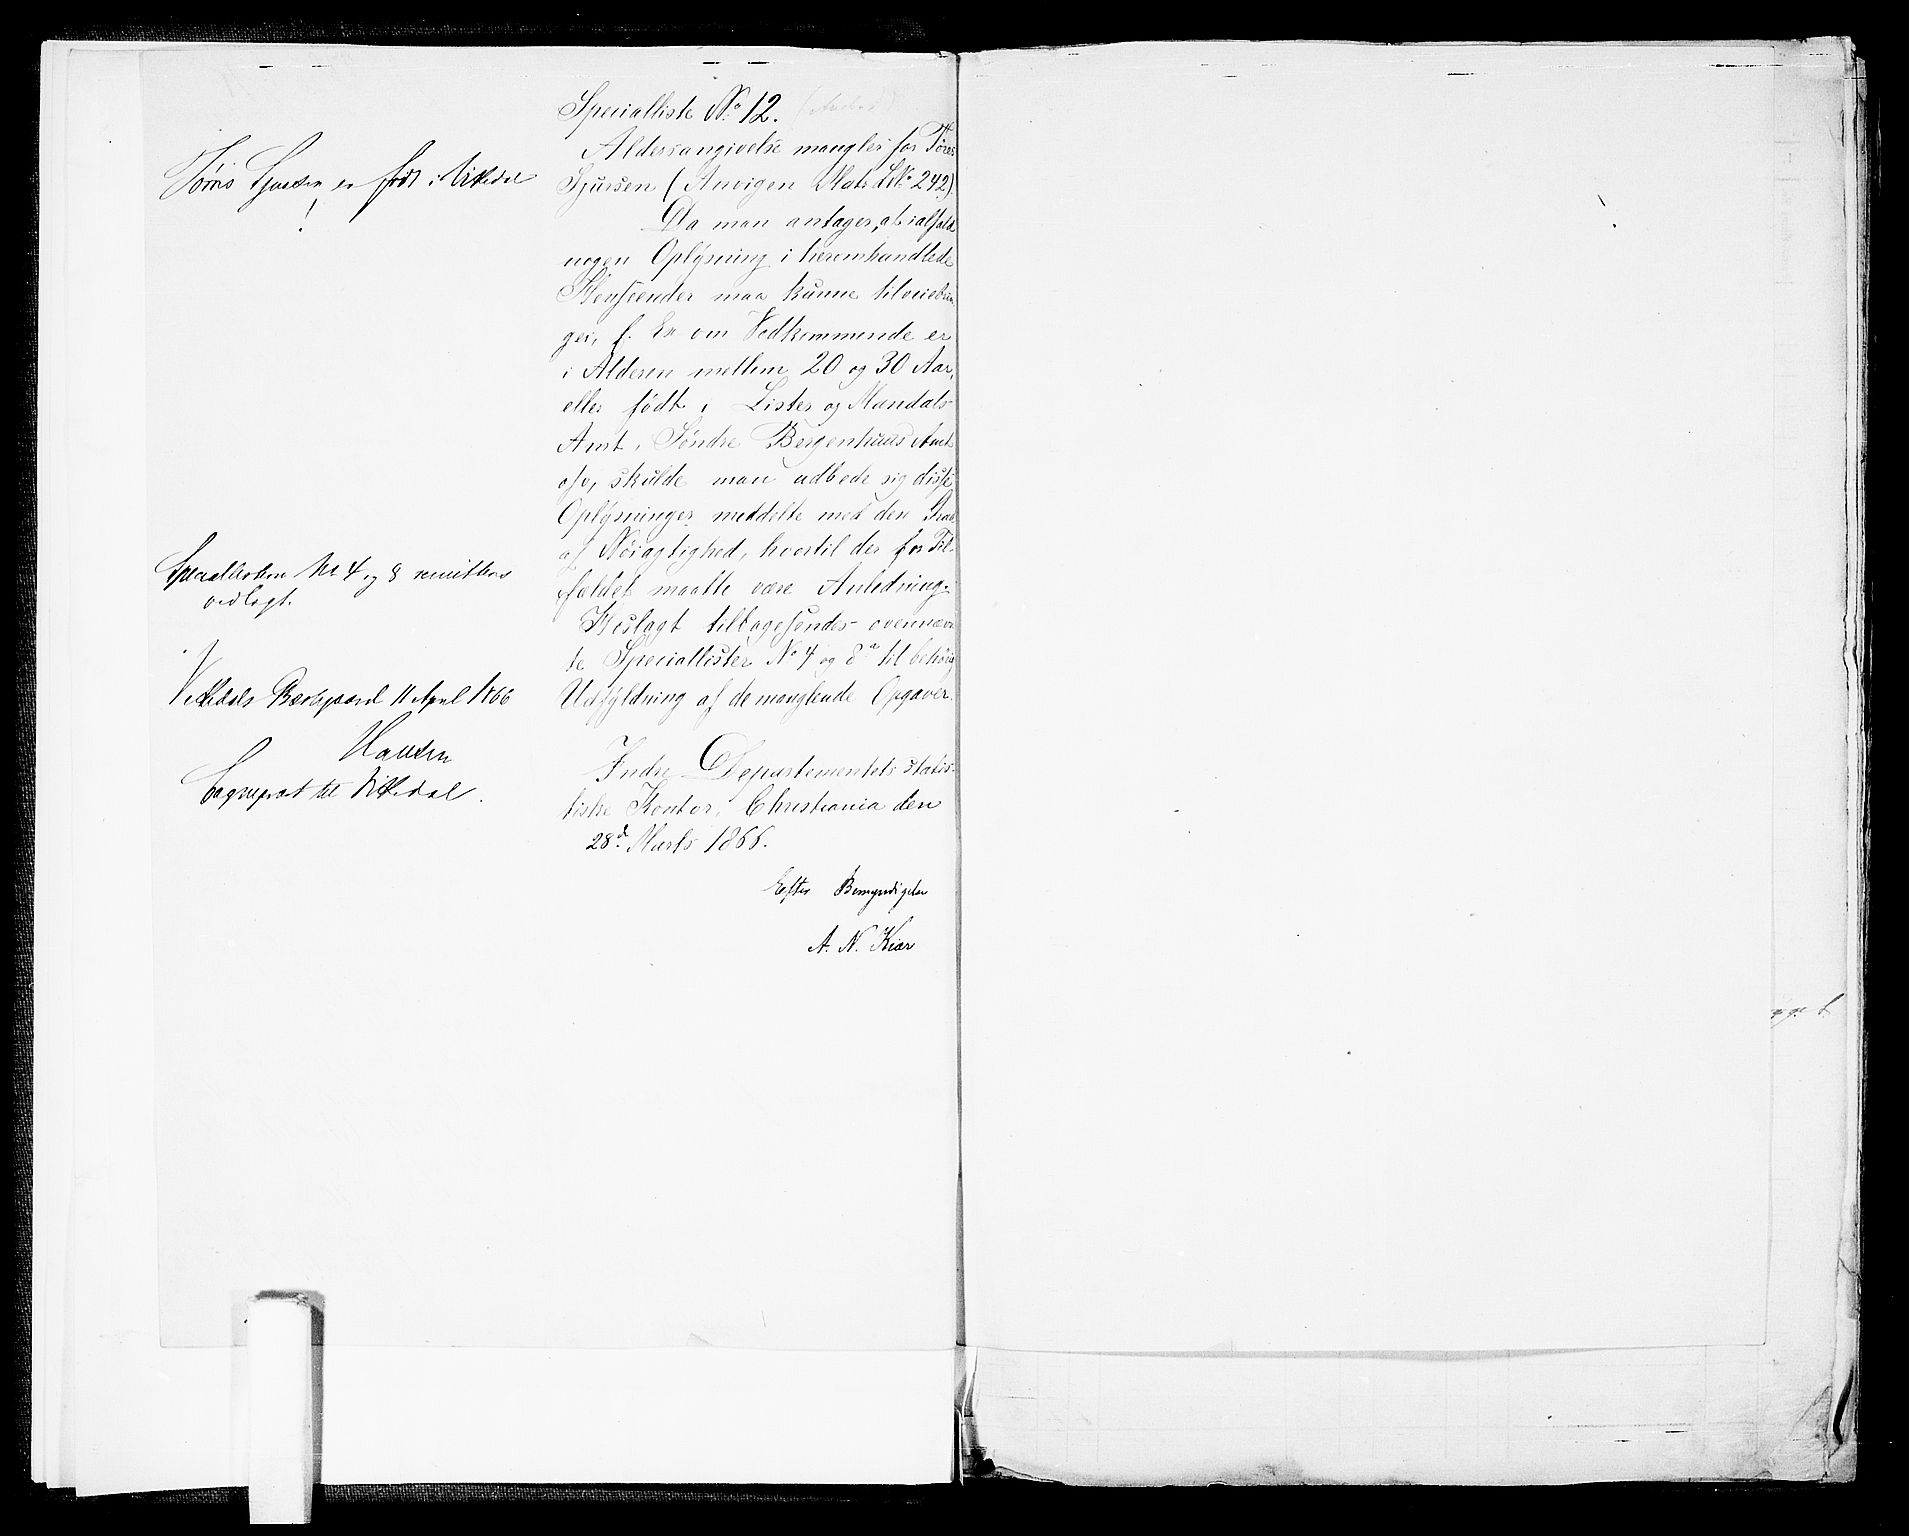 Specialliste No 12.
Aldersangivelse mangler for Tøres
Sjursen (Anvigen Matr. L. No 242).
Da man antager, at ialfald
nogen Oplysning i heromhandlede
Henseender maa kunne tilveiebrin-
ges, f. Ex om Vedkommende er
i Alderen mellem 20 og 30 Aar,
eller født i Lister og Mandals
Amt, Søndre Bergenhuus Amt
osv, skulde man udbede sig disse
Oplysninger meddelte med den Grad
af Nøiagtighed, hvortil der for Til-
fældet maatte være Anledning.
Hoslagt tilbagesendes ovennævn
te Speciallister No 4 og 8 til behørig
Udfyldning af de manglende Opgaver.
Indre Departementets statis-
tiske Kontor, Christiania den
28d Marts 1866.
Efter Bemyndigelse
A. N. Kiær
Tørris Sjursen er født i Vikedal
!
Speciallisterne No 4 og 8 remitteres
vedlagt.
Vikedals Præstegaard 11 April 1866
Hansen
Sogneprest til Vikedal.